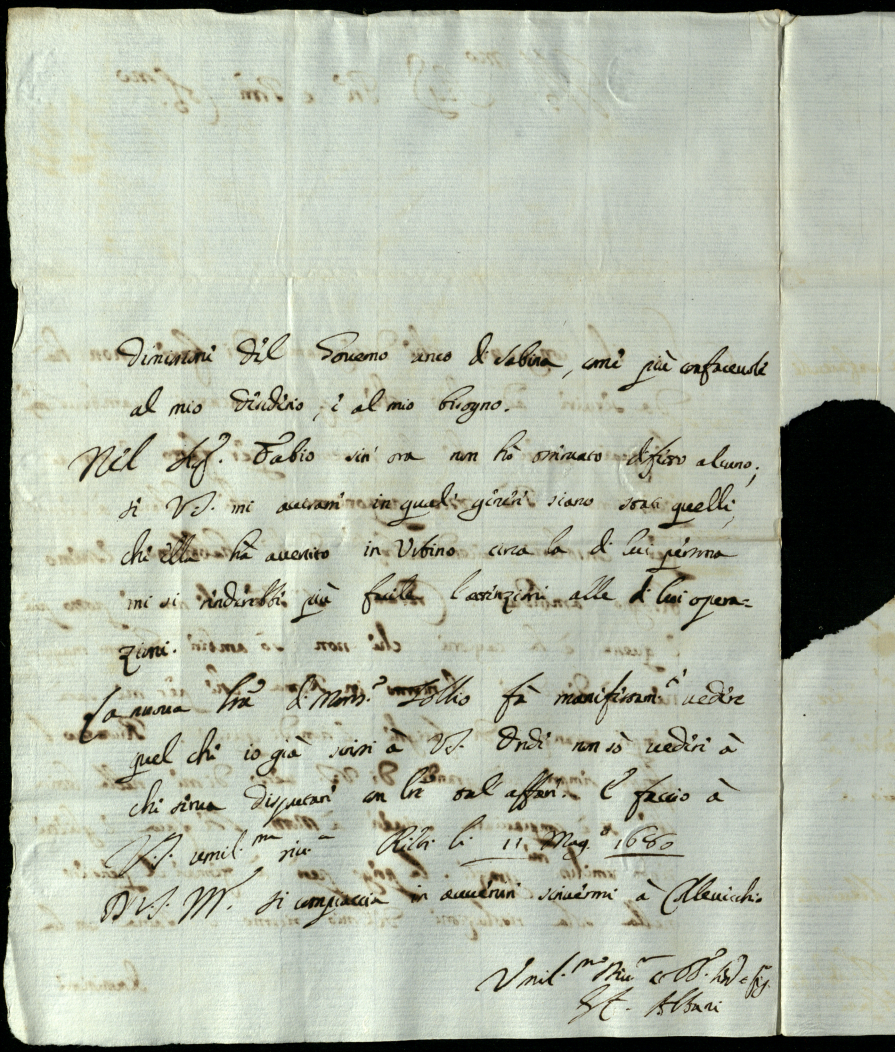 del Governo anco di Sabina, come più confacevole
al mio desiderio, e al mio bisogno.
Nel Sig.r Fabio sin' ora non hò osservato difetto alcuno;
se V.S. mi avvisarà in quali generi siano stati quelli,
che ella hà avertito in Urbino circa la di lui persona
mi si renderebbe più facile l'attenzione alle di lui opera=
zioni.
La nuova lr̃a di Mons.r fà manifestam.te vedere
quel che io già scrissi à V.S. Onde non sò vedere à
che serva disputare con lr̃e tal' affare. E faccio à
V.S. umil.ma riv.a li 11 Mag.o 1660
Di V.S. M. si compiaccia in avvenire scrivermi à Collevecchio
Umil.mo
Albani